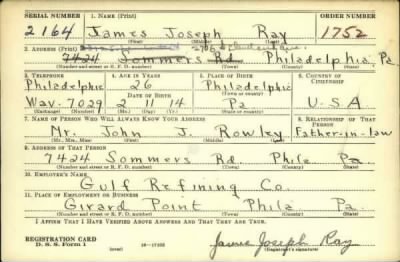 SERIAL NUMBER 1. NAME (Print) ORDER NUMBER
2164 James Joseph Ray 1752
(First) (Middle) (Last)
2. ADDRESS (Print)
7424 Sommers Rd. Philadelphia, Pa.
(Number and street or R. F. D. number) (Town) (County) (State)
3. TELEPHONE 4. AGE IN YEARS 5. PLACE OF BIRTH 6. COUNTRY OF CITIZENSHIP
Philadelphia 26 Philadelphia
DATE OF BIRTH (Town or county)
Wav. 7029 2 11 14 Pa U.S.A
(Exchange) (Number) (Mo.) (Day) (Yr.) (State or country)
7. NAME OF PERSON WHO WILL ALWAYS KNOW YOUR ADDRESS 8. RELATIONSHIP OF THAT PERSON
Mr. John J. Rowley Father-in-law
(Mr., Mrs., Miss) (First) (Middle) (Last)
9. ADDRESS OF THAT PERSON
7424 Sommers Rd. Phila Pa.
(Number and street or R. F. D. number) (Town) (County) (State)
10. EMPLOYER'S NAME
Gulf Refining Co.
11. PLACE OF EMPLOYMENT OR BUSINESS
Girard Point Phila. Pa.
(Number and street or R. F. D. number) (Town) (County) (State)
I AFFIRM THAT I HAVE VERIFIED ABOVE ANSWERS AND THAT THEY ARE TRUE.
REGISTRATION CARD James Joseph Ray
D. S. S. Form 1 (over) (Registrant's signature)